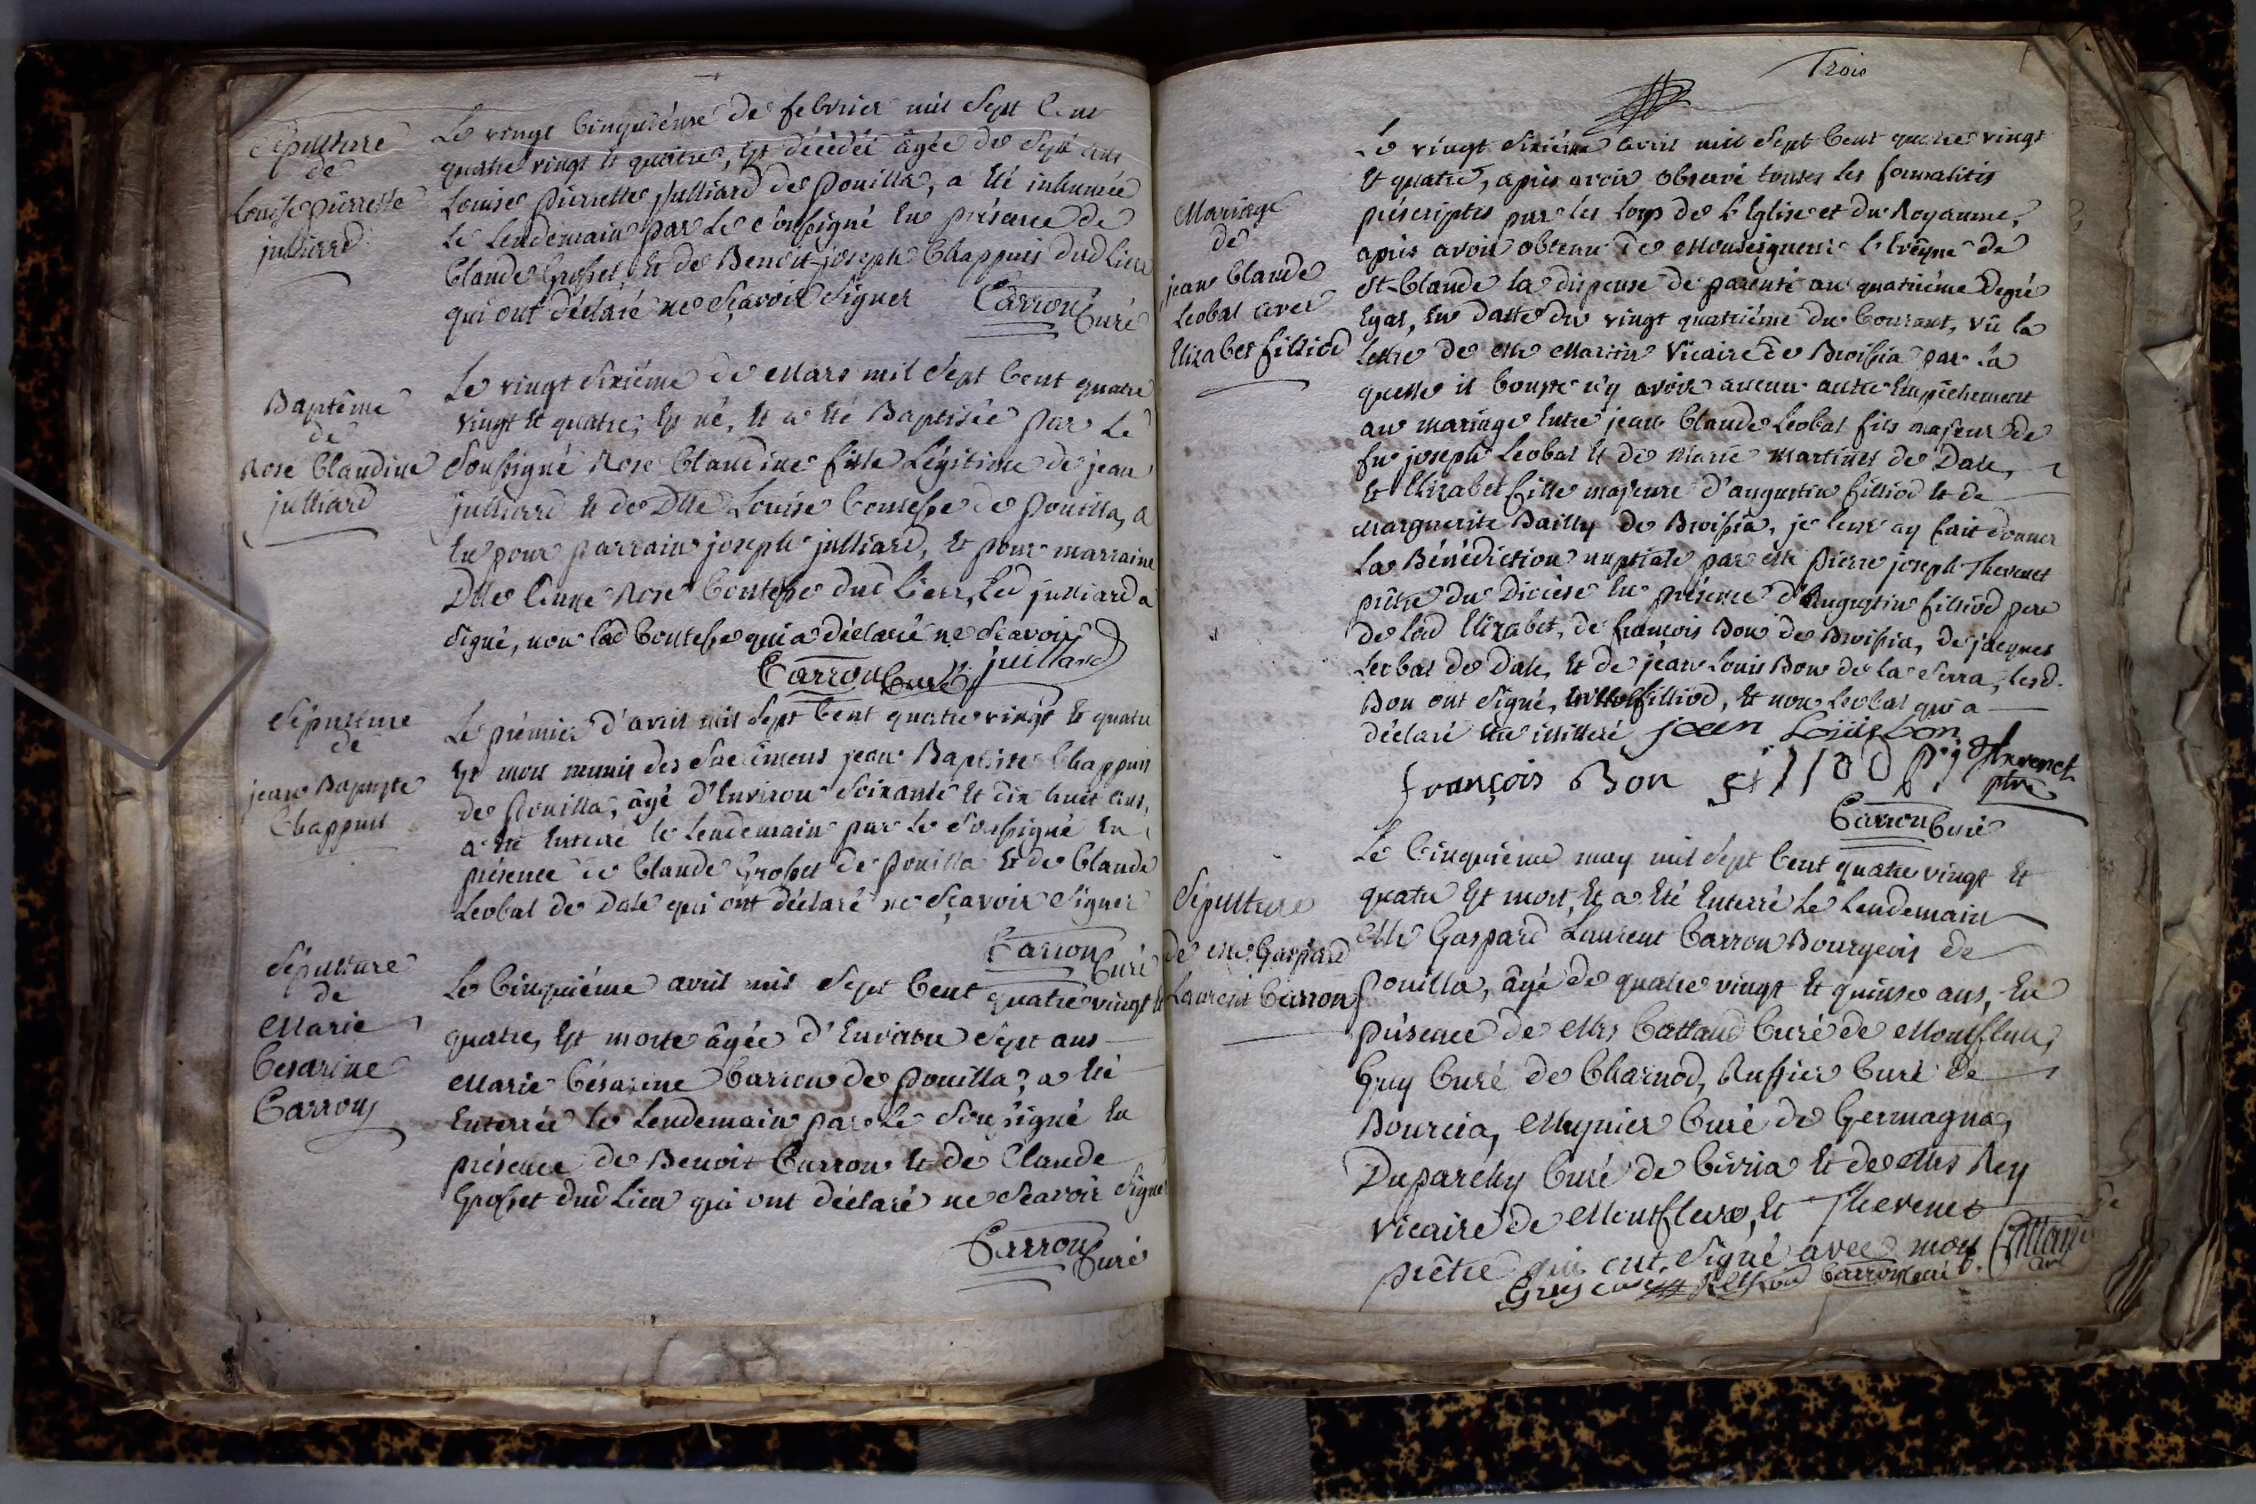 Sépulture
de
Louise pierrette
julliard
Le vingt Cinquiéme de febvrier mil Sept Cent
quatre vingt et quatre, Est décédée âgée de Sept ans
Louise Pierrette julliard de Pouilla, a été inhumée
le Lendemain par Le Soussigné En présence de
Claude Grosset, Et de Benoit-joseph Chappuis dud Lieu
qui ont déclaré ne Sçavoir Signer Carron Curé
Baptême
de
Rose Claudine
julliard
Le vingt Sixiéme de Mars mil Sept Cent quatre
vingt et quatre, Est né, et a été Baptisée Par Le
Soussigné Rose Claudine fille Légitime de jean
julliard et de Dlle Louise Contesse de Pouilla, a
Eu pour parrain joseph julliard, Et pour marraine
Dlle Anne Rose Contesse dud Lieu, Led julliard a
Signé, non lad Contesse qui a déclaré ne Sçavoir
Carron Curé juillard
Sépulture
de
jean Baptiste
Chappuis
Le prémier d'avril mil Sept Cent quatre vingt et quatre
Est mort munis des Sacremens jean Baptiste Chappuis
de Pouilla, âgé d'Environ Soixante Et dix huit ans,
a été Enterré le Lendemain par le Soussigné En
présence de Claude Grosset de Pouilla Et de Claude
Leobal de Dale qui ont déclaré ne Sçavoir Signer
Carron Curé
Sépulture
de
Marie
Cesarine
Carron
Le Cinquiéme avril mil Sept Cent quatre vingt et
quatre, Est morte âgée d'Environ Sept ans
Marie Césarine Carron de Pouilla, a été
Enterrée le Lendemain par Le Soussigné En
présence de Benoit Carron Et de Claude
Grosset dud Lieu qui ont déclaré ne Sçavoir Signer
Carron Curé
Trois
Mariage
de
jean Claude
Leobal avec
Elizabet filliod
Le vingt Sixiéme avril mil Sept Cent quatre vingt
Et quatre, après avoir observé toutes les formalités
préscriptes par les Loys de L'Eglise et du Royaume,
après avoir obtenu de Monseigneur l'Evêque de
St-Claude la dispense de parenté au quatriéme Degré
Egal, En datte du vingt quatriéme du Courant, vû la
Lettre de Mr Martin Vicaire de Broissia par la
quelle il Conste n'y avoir aucun autre Empêchement
au mariage Entre jean Claude Leobal fils majeur de
fu joseph Leobal Et de Marie Martinet de Dale,
Et Elizabet fille majeure d'augustin filliod Et de
Marguerite Bailly de Broissia, je leur ay fait donner
La Bénédiction nuptiale par Mr pierre joseph Thevenet
prêtre du Diocèse En présence d'Augustin filliod pere
de lad Elizabet, de françois Bon de Broissia, de jacques
Leobal de Dale, Et de jean Louis Bon de la Serra, lesd.
Bon ont Signé, filliod, Et non Leobal qui a
déclaré Etre illitteré jean Louis bon
françois Bon filiod p j Thevenet
ptre
Carron Curé
Sépulture
de Mr Gaspard
Laurent Carron
Le Cinquiéme may mil Sept Cent quatre vingt Et
quatre Est mort, Et a Eté Enterré Le Lendemain
Mr Gaspard Laurent Carron Bourgeois de
Pouilla, âgé de quatre vingt Et quinse ans, En
présence de Mrs Cattand Curé de Montfleur,
Guy Curé de Charnod, Ruffier Curé de
Bourcia, Meynier Curé de Germagna,
Duparchy Curé de Civria Et de Mrs Rey
vicaire de Montfleur, Et Thevenet
prêtre qui ont Signé avec moy Cattand
Guy curé Carron curé